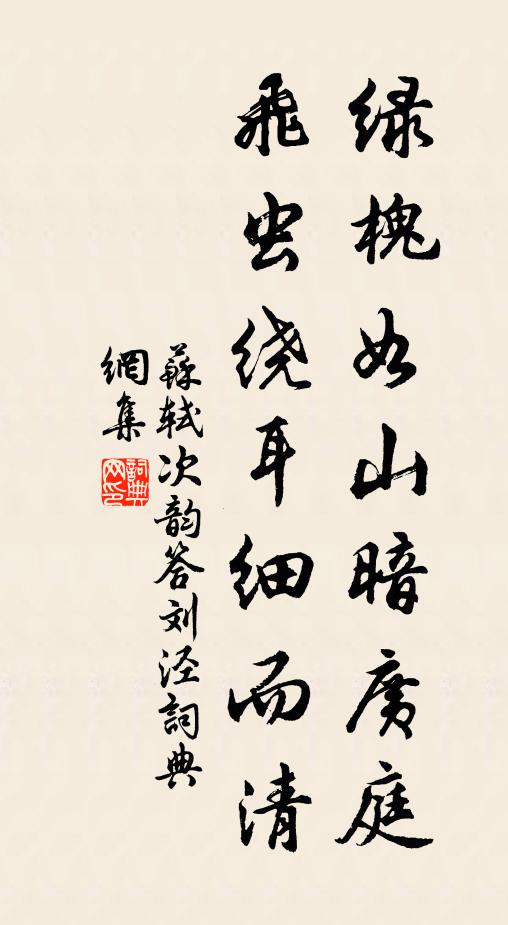 绿槐如山暗广庭
飞虫绕耳细而清
蘇轼次韵答刘泾詞典
網集
詞典
网印